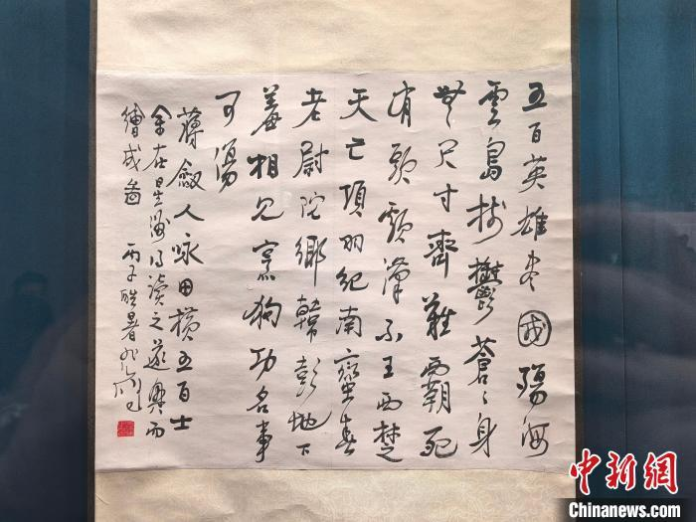 五百英雄尽國殤海
雲島樹鬱蒼〻身
無尺寸齊難霸死
有頭顱漢不王西楚
天亡項羽紀南蠻春
老尉陀鄉韓彭地下
羞相見烹狗功名事
可傷
薄劔人咏田橫五百士
余在星洲得讀之遂興而
繪成圖 丙子酷暑
中新网
Chinanews.com